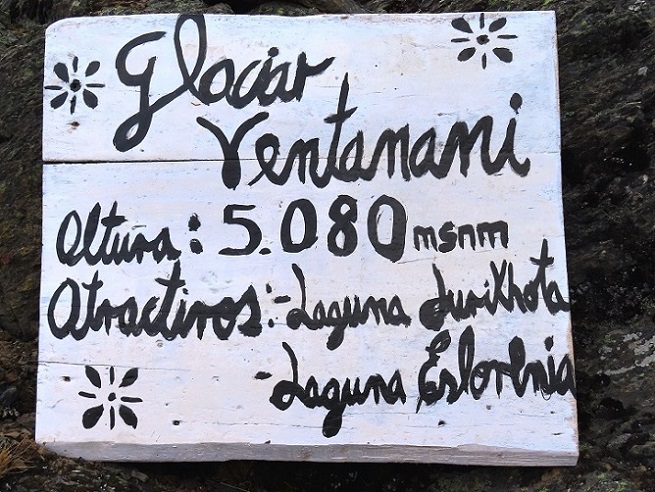 Glaciar
Ventanani
Altura: 5.080 msnm
Atractivos: - Laguna Jurikhota
- Laguna Eslovenia